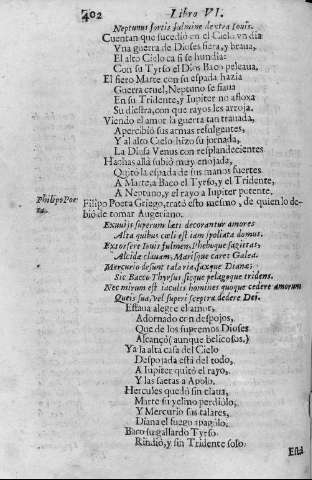 402 Libro VI.
Neptunus fortis fulmine dextra Iouis.
Cuentan que sucedió en el Cielo vn dia
Vna guerra de Dioses fiera, y braua,
El alto Cielo casi se hundia:
Con su Tyrso el Dios Baco peleaua,
El fiero Marte con su espada hazia
Guerra cruel, Neptuno se fiaua
En su Tridente, y Iupiter no afloxa
Su diestra, con que rayos les arroja.
Viendo el amor la guerra tan trauada,
Apercibió sus armas refulgentes,
Y al alto Cielo hizo su jornada,
La Diosa Venus con resplandecientes
Hachas allá subió muy enojada,
Quitó la espada de sus manos fuertes
A Marte, a Baco el Tyrso, y el Tridente,
A Neptuno, y el rayo a Iupiter potente.
Philipo Poeta.
Filipo Poeta Griego, trató esto mismo, de quien lo debió
de tomar Augeriano.
Exuuijs superum læti decorantur amores
Alta quibus cæli est iam spoliata domus.
Extorsere Iouis fulmen, Phebuque sagittas,
Alcidæ clauam, Marisque caret Galea.
Mercurio desunt talaria, faxque Dianæ:
Sic Bacco Thyrsus, sicque pelagoque tridens.
Nec mirum est iaculis homines quoque cedere amorum
Queis sua, vel superi sceptra dedere Dei.
Estaua alegre el amor,
Adornado con despojos,
Que de los supremos Dioses
Alcançó (aunque belicosos.)
Ya la alta casa del Cielo
Despojada está del todo,
A Iupiter quitó el rayo,
Y las saetas a Apolo.
Hercules quedó sin claua,
Marte su yelmo perdiólo,
Y Mercurio sus talares,
Diana el fuego apagólo,
Baco su gallardo Tyrso
Rindió, y sin Tridente solo.
Está